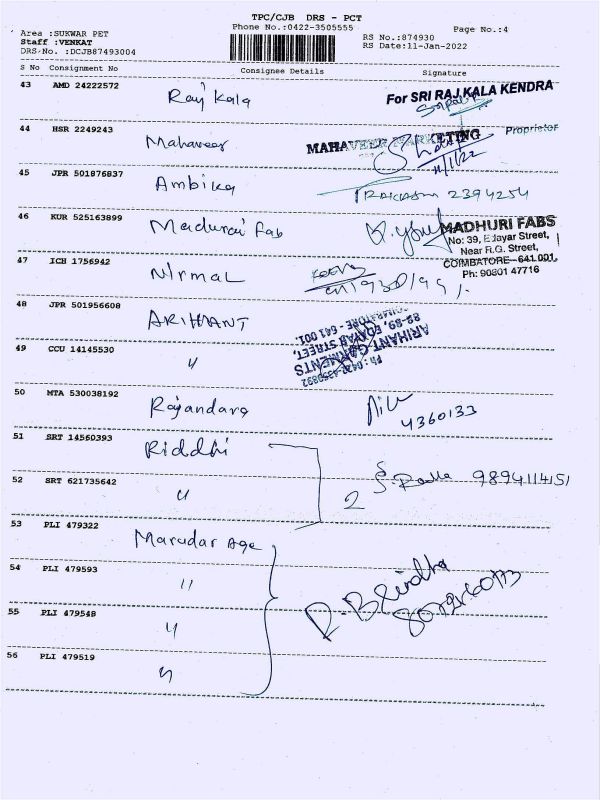 TPC/CJB DRS - PCT
Phone No.:0422-3505555
Page No.:4
Area :SUKWAR PET
Staff :VENKAT
DRS-No. :DCJB87493004
RS No.:874930
RS Date:11-Jan-2022
S No Consignment No Consignee Details Signature
43 AMD 24222572 Raj Kala
For SRI RAJ KALA KENDRA
Proprietor
44 HSR 2249243 Mahaveer
MAHAVEER MARKETING
11/1/22
45 JPR 501876837 Ambika
2394254
46 KUR 525163899 Madurai Fab
MADHURI FABS
No: 39, Edayar Street,
Near R.G. Street,
COIMBATORE - 641 001.
Ph: 90801 47716
47 ICH 1756942 Nirmal
48 JPR 501956608 ARIHANT
ARIHANT GARMENTS
STREET,
COIMBATORE - 641 001.
49 CCU 14145530 "
50 MTA 530038192
4360133
51 SRT 14560393 Riddhi
52 SRT 621735642 "
2
9894114151
53 PLI 479322 Marudar Age
54 PLI 479593 "
55 PLI 479548 "
56 PLI 479519 "